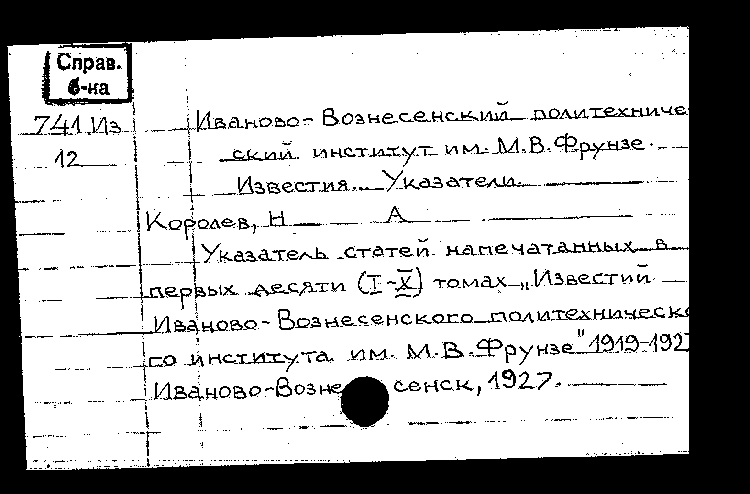 Справ.
б-ка
741 Из Иваново-Вознесенский политехниче
12 ский институт им. М.В.Фрунзе.
Известия. Указатели.
Королев, Н А
Указатель статей напечатанных в
первых десяти (I-X) томах „Известий
Иваново-Вознесенского политехническо
го института им. М.В.Фрунзе" 1919-1927
Иваново-Вознесенск, 1927.